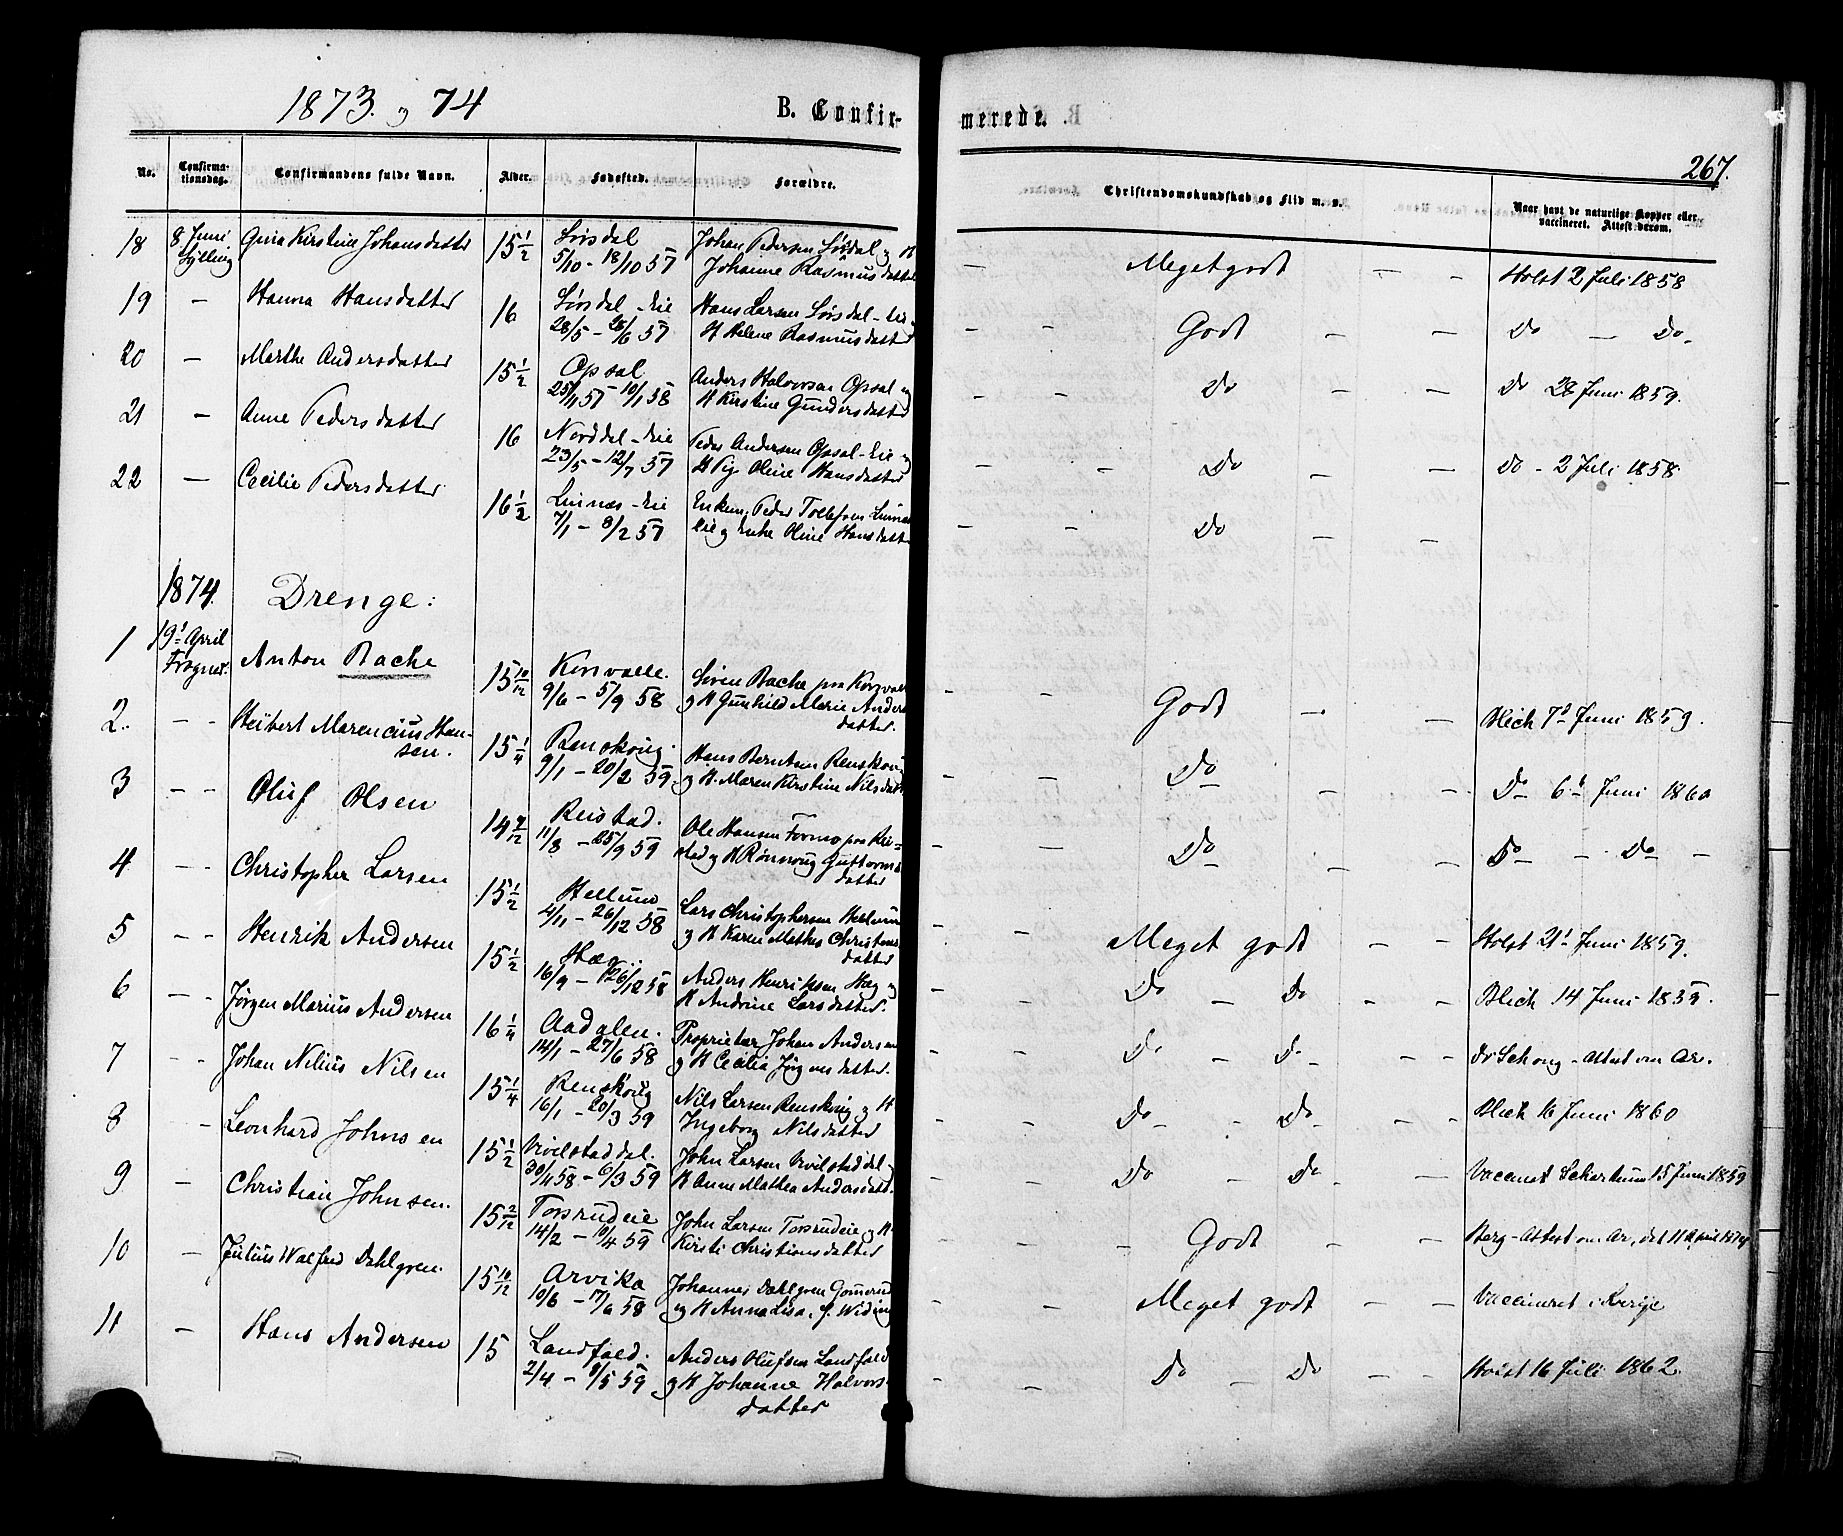 1873. og 74
B. Confir-
merede.
267.
No.
Confirma-
tionsdag.
Confirmandens fulde Navn.
Alder.
Fødested.
Forældre.
Christendomskundskab og Flid m. v.
Naar havt de naturlige Kopper eller
vaccineret. Attest derom.
18 8 Juni Gina Kirstine Johansdatter 15 1/2 Sørsdal Johan Pedersen Sørsdal og H
Sylling 5/10 - 18/10 57 Johanne Rasmusdatter - Meget godt - - Holst 2 Juli 1858
19 - Hanna Hansdatter 16 Sørsdal-eie Hans Larsen Sørsdal-eie
28/5 - 28/6 57 H Helene Rasmusdatter - - Godt - - Do - Do.
20 - Marthe Andersdatter 15 1/2 Opsal Anders Halvorsen Opsal og
25/11 57 - 10/1 58 H Kirstine Gundersdatter - - Do - - Do 28 Juni 1859.
21 - Anne Pedersdatter 16 Norddal-eie Peder Andersen Opsal-eie og
23/5 - 12/7 57 H Pige Oline Hansdatter - - Do - - Do - 2 Juli 1858
22 - Cecilie Pedersdatter 16 1/2 Linnæs-eie Enkem. Peder Tollefsen Linnæs
7/1 - 8/2 57 eie og Enke Oline Hansdatter - - Do - -
1874. Drenge:
1 19' April Anton Bache 15 10/12 Kornvalle. Søren Bache paa Kornval
Frogner. 9/6 - 5/9 58 og H Gunhild Marie Anders
datter. - - Godt - - Blich 7' Juni 1859.
2. - - Heibert Marencius Han-
sen. 15 1/4 Renskoug. Hans Berntsen Renskoug
9/1 - 20/2 59. og H. Maren Kirstine Nilsdatt - - Do - - Do 6' Juni 1860
3 - - Oluf Olsen 14 7/12 Reistad. Ole Hansen Formo paa Rei-
11/8 - 25/9 59 stad og H Rønnoug Guttorms
datter - - Do - - Do - Do -
4 - - Christopher Larsen 15 1/2 Hellum Lars Christophersen Hellum
4/11 - 26/12 58 og H Karen Mathea Christens
datter - - Meget godt - - Holst 21' Juni 1859.
5 - - Henrik Andersen 15 1/2 Hæg.. Anders Henriksen Hæg og
16/9 - 26/12 58 H Andrine Larsdatter. - - Do - Do - - Blich 14 Juni 1859.
6 - - Jørgen Marius Andersen 16 1/4 Aadalen. Proprietær Johan Andersen
14/1 - 27/6 58 og H Cecilia Jørgensdatter. - - Do - Do - - Attest om Ar.
7 - - Johan Nilius Nilsen 15 1/4 Renskoug Nils Larsen Renskoug og H
16/1 - 20/3 59 Ingeborg Nilsdatter - - Do - Do - - Blich 16 Juni 1860
8 - Leonhard Johnsen 15 1/2 Vivelstaddal. John Larsen Vivilstaddal
30/11 58 - 6/3 59 H Anne Mathea Andersdatt. - - Do - Do - - Vaccinat. 15 Juni 1859
9 - Christian Johnsen. 15 2/12 Torsrudeie John Larsen Torsrudeie og H
14/2 - 10/4 59 Kirsti Christiansdatter - - Godt - - Berg - Attest om Ar, det 11 April 1874
10 - Julius Walfred Dahlgren. 15 10/12 Arvika Johannes Dahlgren Gomerud
10/6 - 17/6 58 og H Anna Lisa, f. Widing - - Meget godt - - Vaccineret i Sverige
11 - Hans Andersen 15 Landfald. Anders Olufsen Landfald
2/4 - 8/5 59 og H Johanne Halvors-
datter - - Do - Do - - Holst 16 Juli 1862.